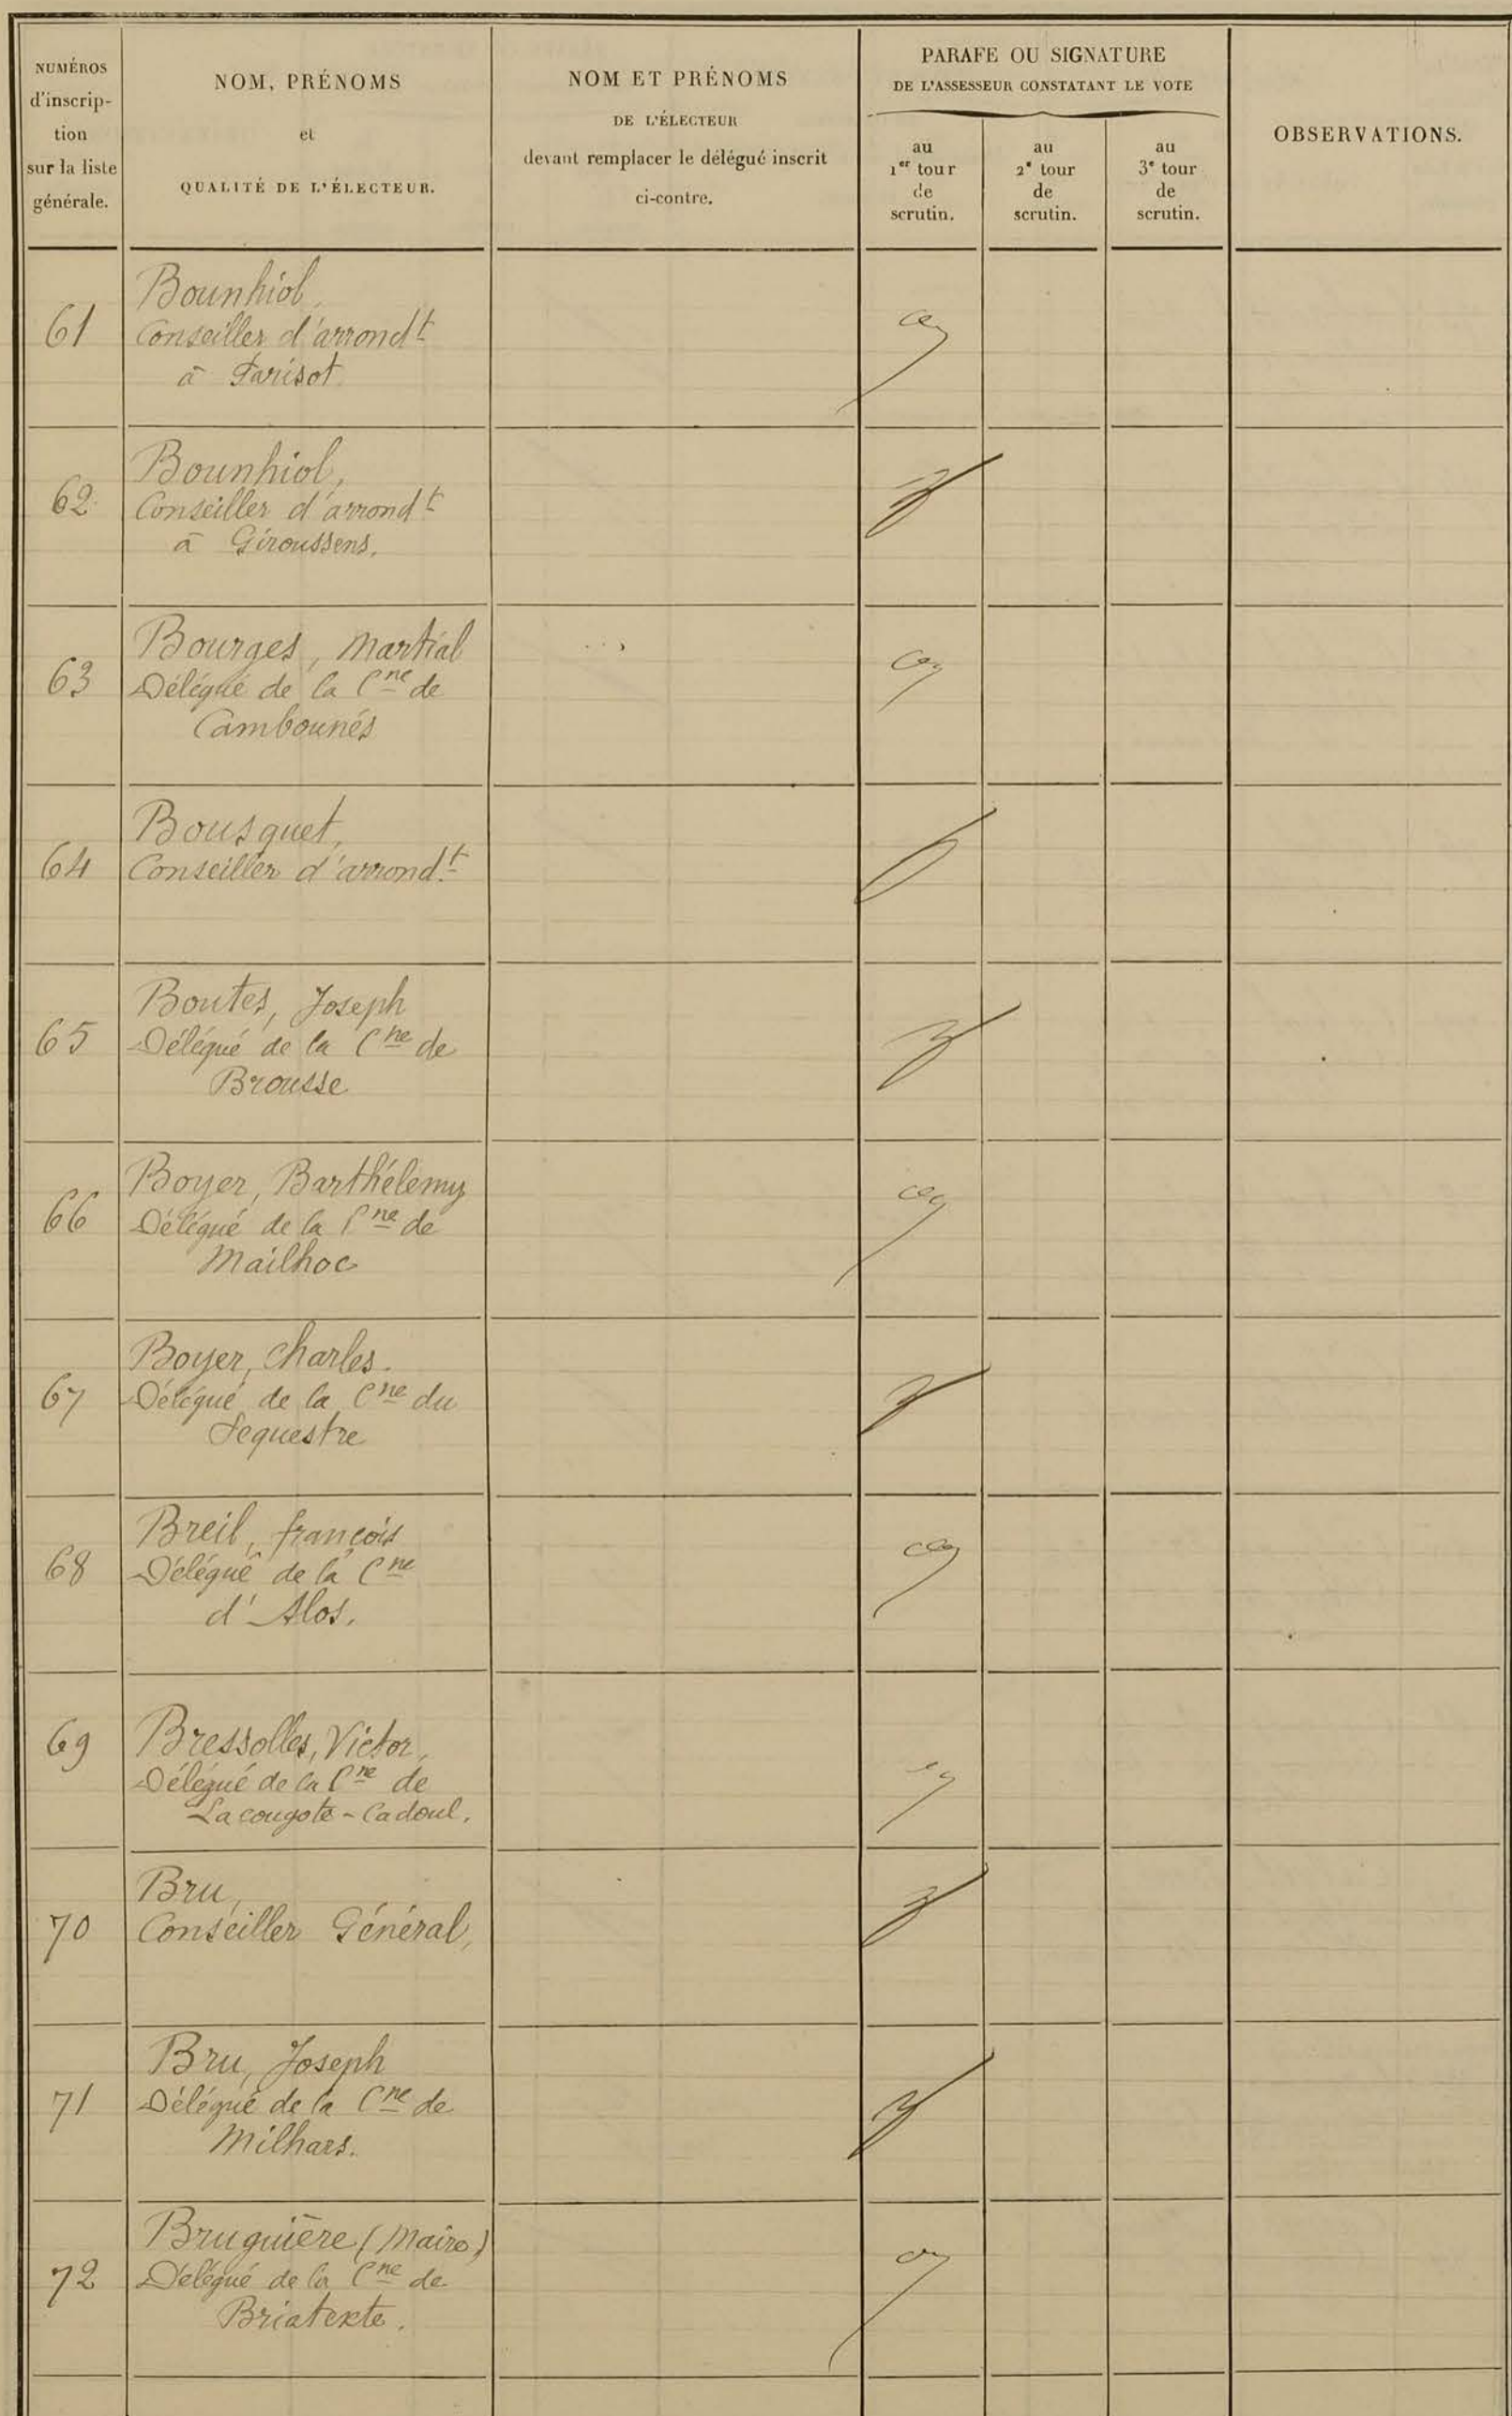 NUMÉROS
d'inscrip-
tion
sur la liste
générale.
NOM, PRÉNOMS
et
QUALITÉ DE L'ÉLECTEUR.
NOM ET PRÉNOMS
DE L'ÉLECTEUR
devant remplacer le délégué inscrit
ci-contre.
PARAFE OU SIGNATURE
DE L'ASSESSEUR CONSTATANT LE VOTE
au
1er tour
de
scrutin.
au
2e tour
de
scrutin.
au
3e tour
de
scrutin.
OBSERVATIONS.
61
Bounhiol,
Conseiller d'arrondt
à Parisot
62
Bounhiol,
Conseiller d'arrondt
à Giroussens.
63
Bourges, Martial
Délégué de la Cne de
Cambounés
64
Bousquet,
Conseiller d'arrondt
65
Boutes, Joseph
Délégué de la Cne de
Brousse
66
Boyer, Barthélemy
Délégué de la Cne de
Mailhoc
67
Boyer, Charles.
Délégué de la Cne du
Sequestre
68
Breil, françois
Délégué de la Cne
d'Alos.
69
Bressolles, Victor,
Délégué de la Cne de
Lacougote-Cadoul.
70
Bru,
Conseiller Général,
71
Bru, Joseph
Délégué de la Cne de
Milhars.
72
Bruguière (Maire)
Délégué de la Cne de
Briatexte.